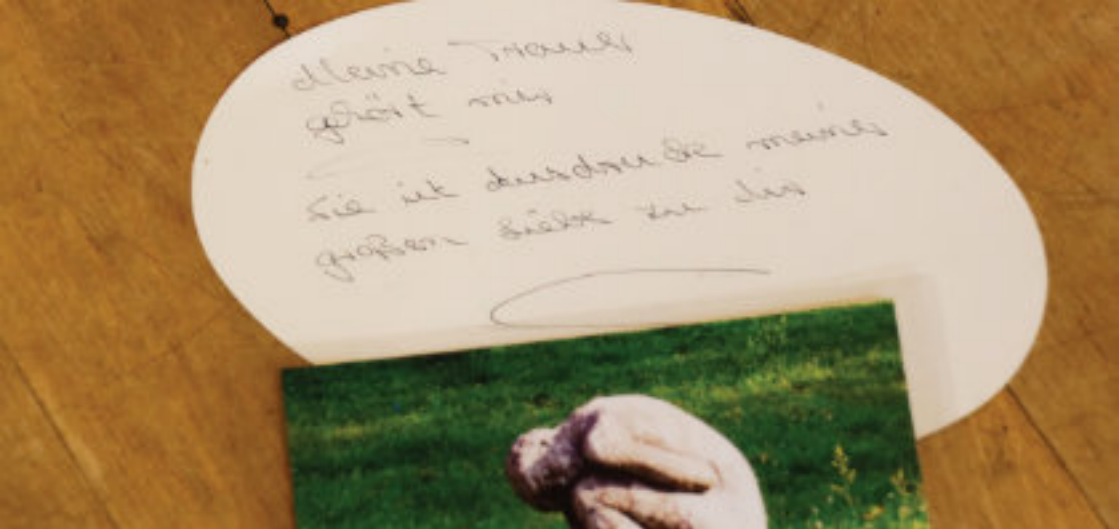 Meine Trauer
gehört mir
Sie ist Ausdruck meiner
großen Liebe zu dir